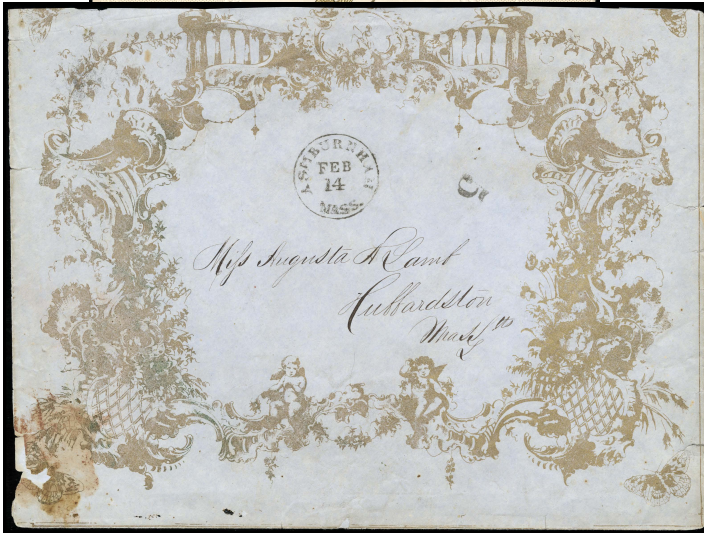 ASHBURNHAM
FEB
14
MASS.
Miss Augusta A Lamb
Hubbardston
Mass